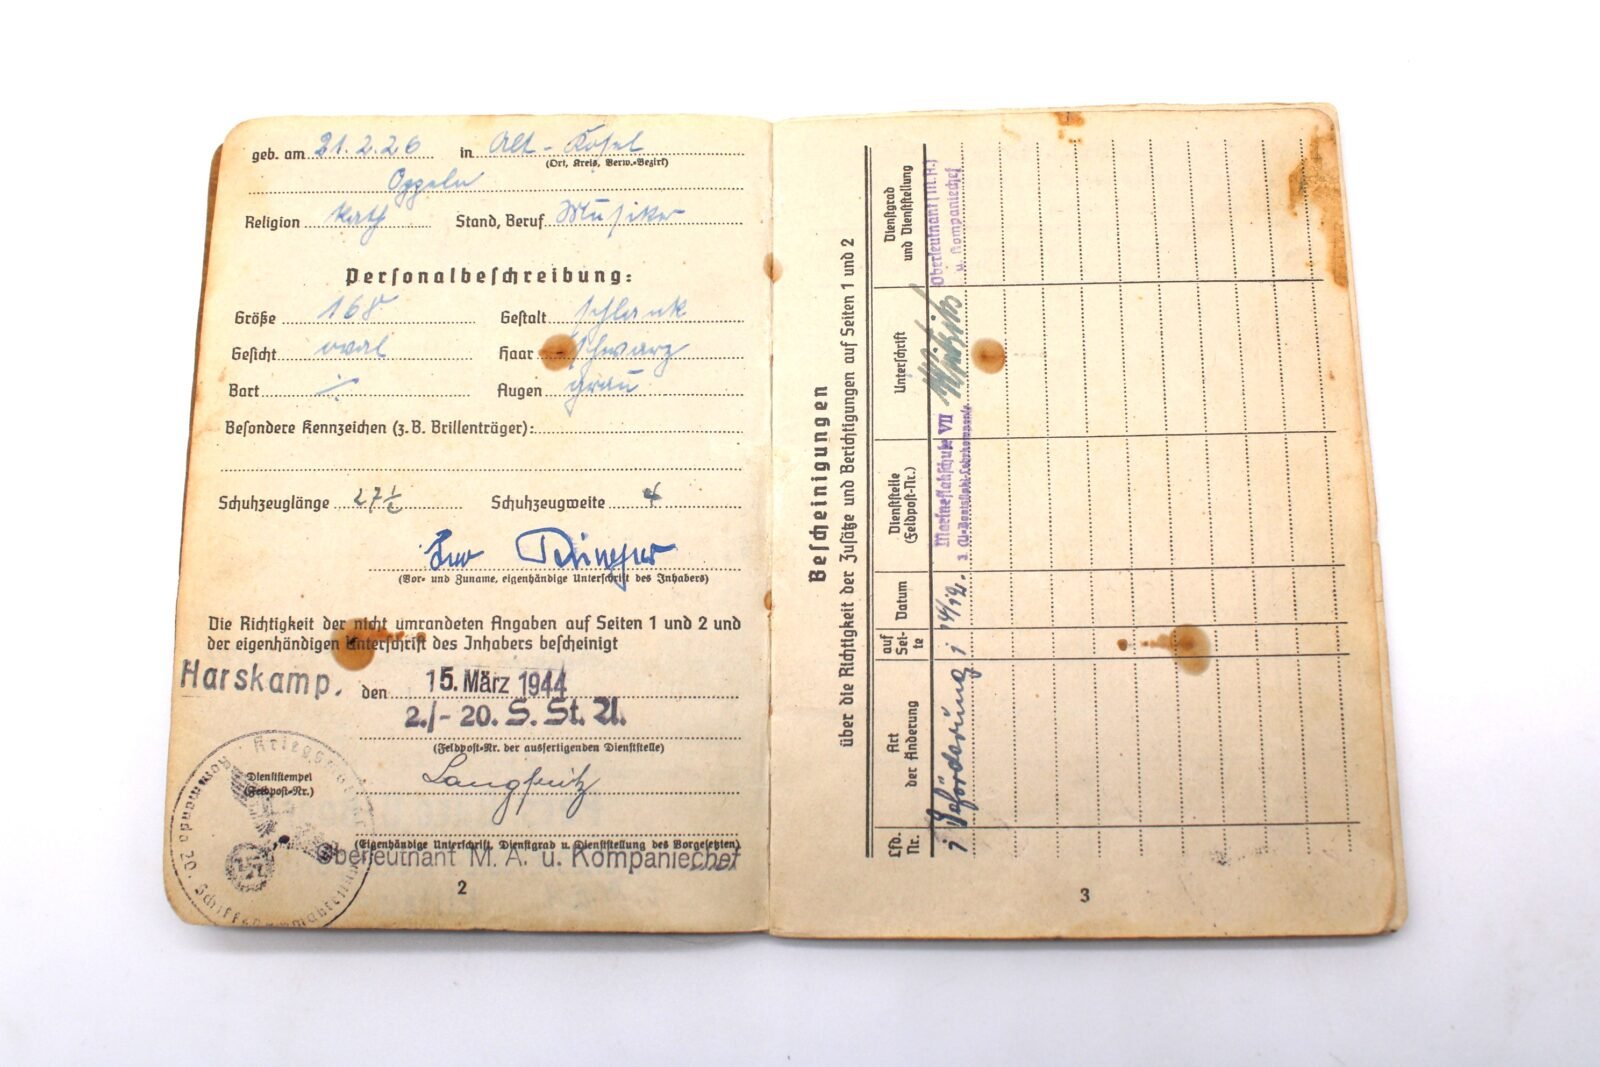 geb. am 21.2.26 in Alt-Kosel
(Ort, Kreis, Verw.-Bezirk)
Oppeln
Religion kath Stand, Beruf Musiker
Personalbeschreibung:
Größe 168 Gestalt schlank
Gesicht oval Haar schwarz
Bart ./. Augen grau
Besondere Kennzeichen (z. B. Brillenträger):
Schuhzeuglänge 27½ Schuhzeugweite 4
(Vor- und Zuname, eigenhändige Unterschrift des Inhabers)
Die Richtigkeit der nicht umrandeten Angaben auf Seiten 1 und 2 und
der eigenhändigen Unterschrift des Inhabers bescheinigt
Harskamp. den 15. März 1944
2./- 20. S. St. A.
(Feldpost-Nr. der ausfertigenden Dienststelle)
Dienststempel
(Feldpost-Nr.)
Kommando 20. Schiffsstammabteilung
(Eigenhändige Unterschrift, Dienstgrad u. Dienststellung des Vorgesetzten)
Oberleutnant M. A. u. Kompaniechef
2
Bescheinigungen
über die Richtigkeit der Zusätze und Berichtigungen auf Seiten 1 und 2
Lfd. Nr. Art der Änderung auf Seite Datum Dienststelle (Feldpost-Nr.) Unterschrift Dienstgrad und Dienststellung
1 Beförderung 1 14/12. Marineflakschule VII Oberleutnant (M.A.)
u. Kompaniechef
3